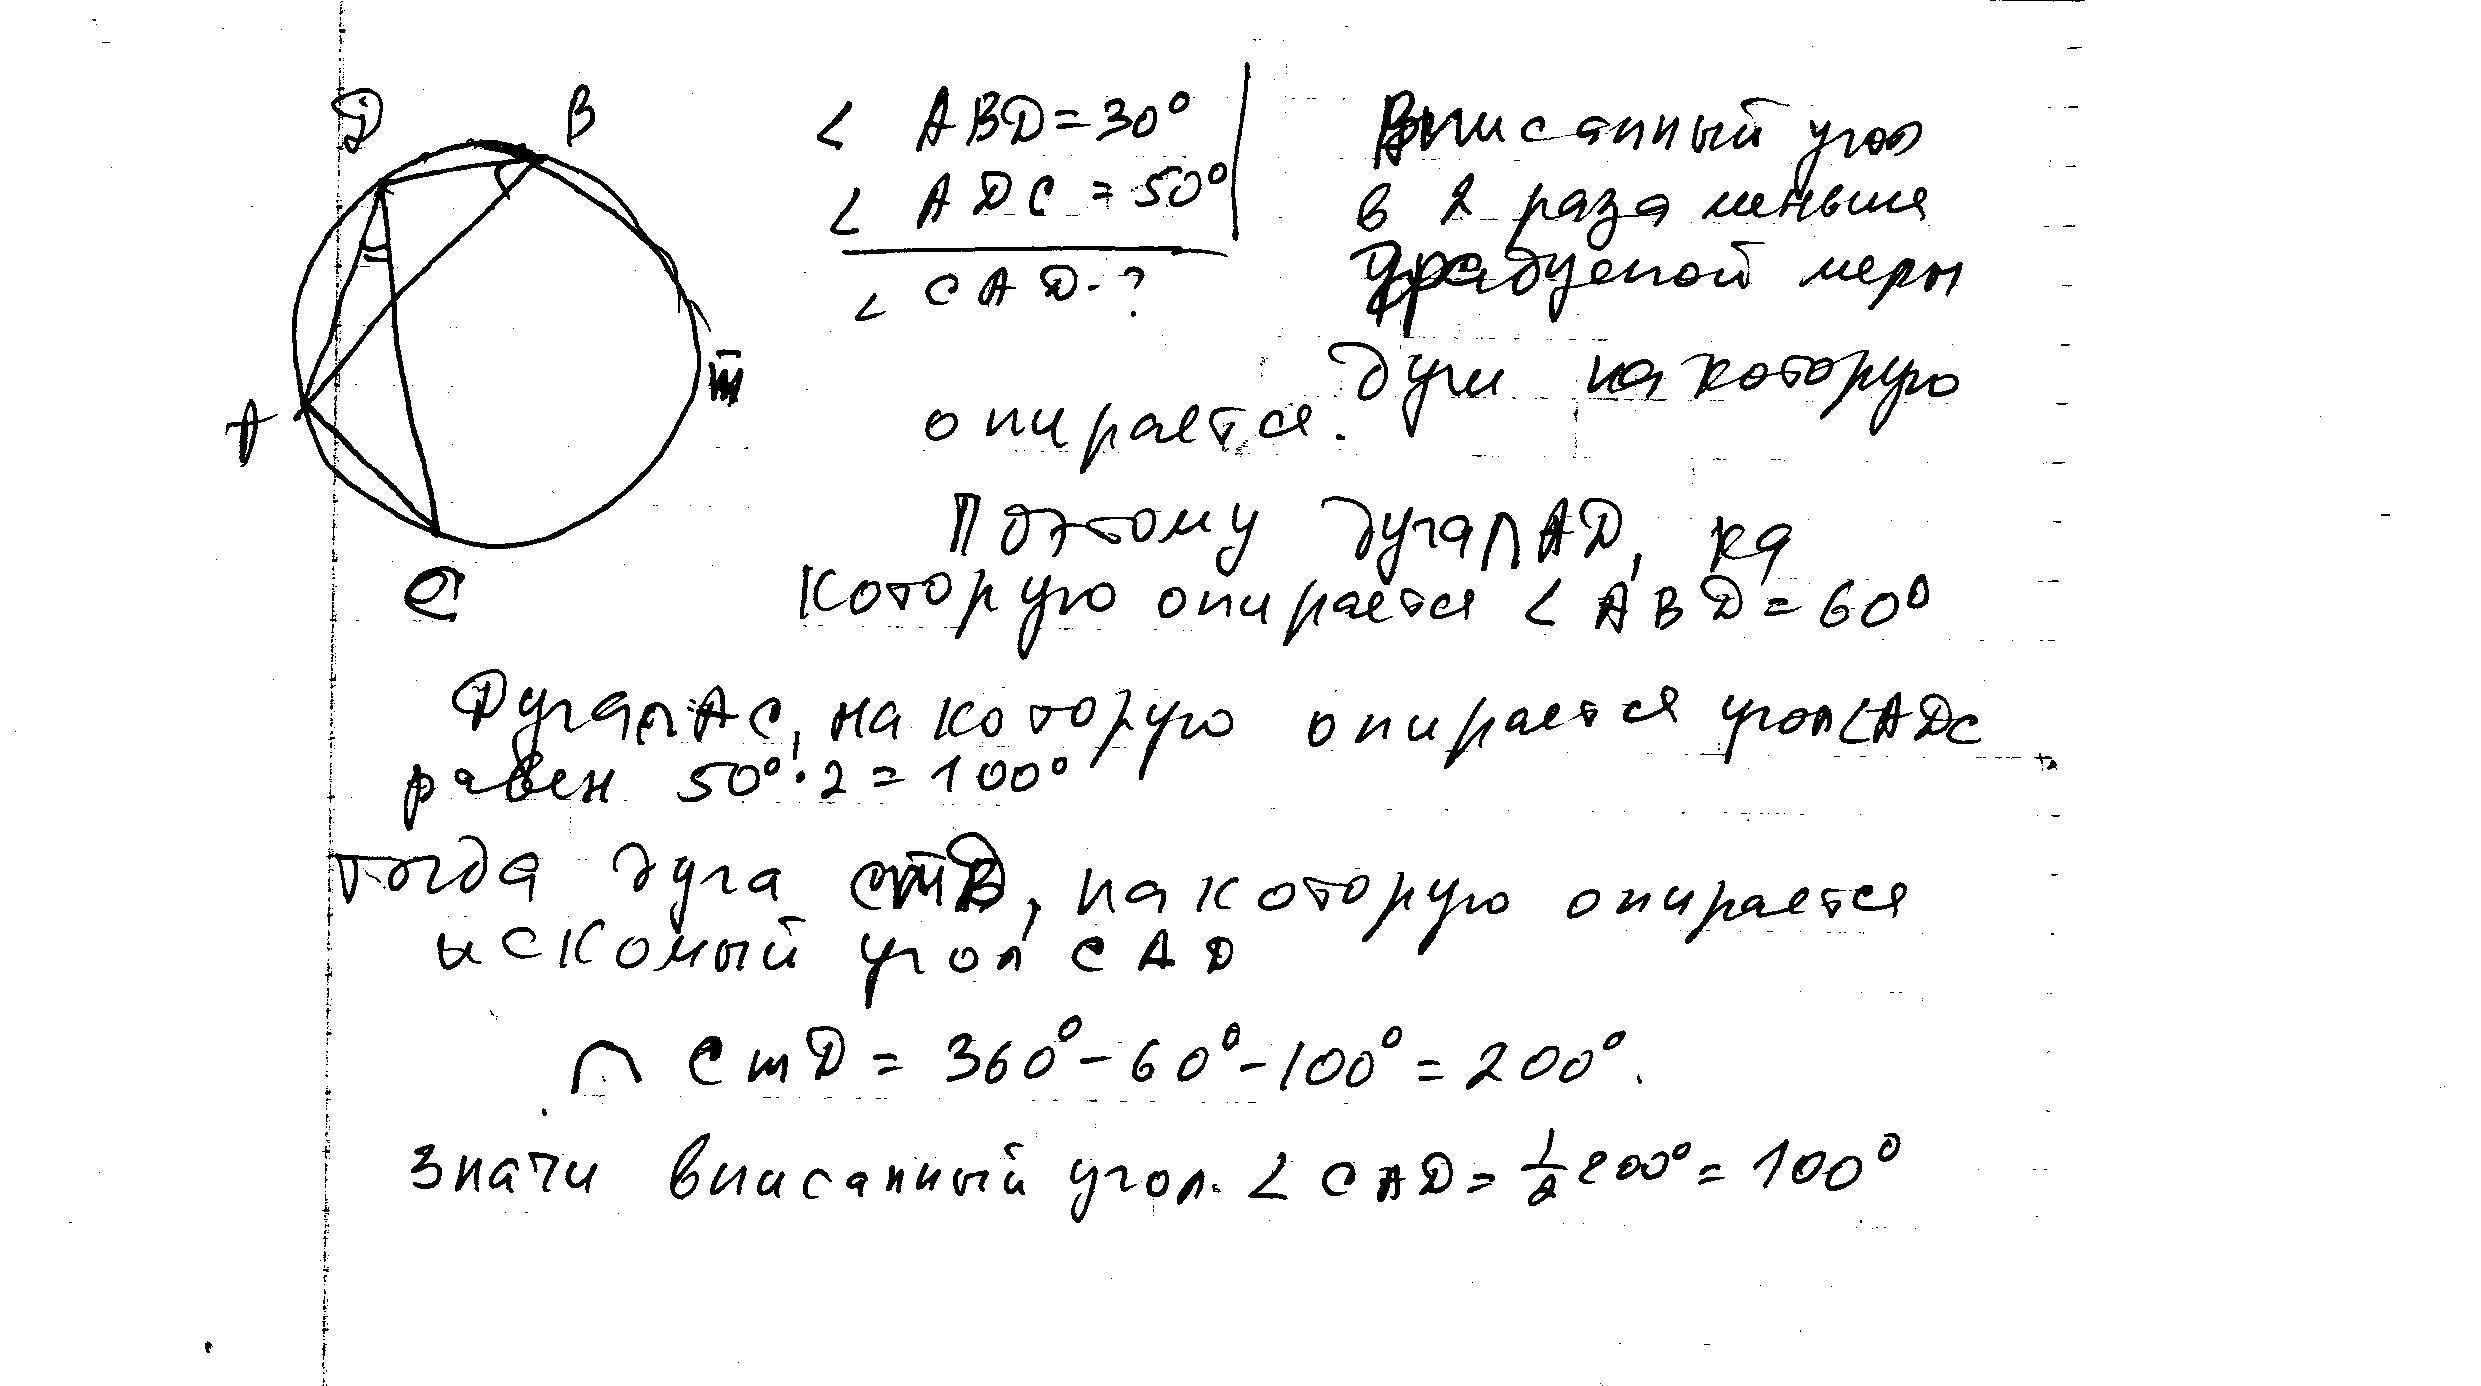 D B
A
C
m
< ABD = 30°
< ADC = 50°
< CAD - ?
Вписанный угол
в 2 раза меньше
градусной меры
дуги на которую
опирается.
Поэтому дуга ∩ AD, на
которую опирается < ABD = 60°
Дуга ∩ AC, на которую опирается угол < ADC
равен 50° · 2 = 100°
тогда дуга CmD, на которую опирается
искомый угол CAD
∩ CmD = 360° - 60° - 100° = 200°.
Значи вписанный угол. < CAD = 1/2 200° = 100°